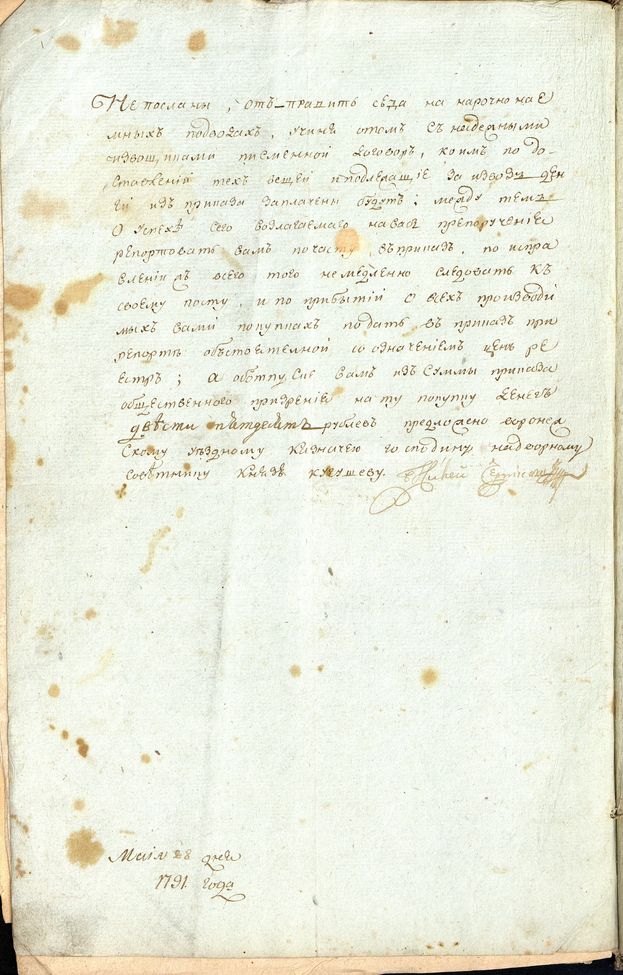 Не посланы, отъ-править сюда на нарочно нае
мныхъ подводахъ, учиня отомъ съ надежными
извощиками писменной договоръ, коимъ по до-
ставленiй техъ вещей иподлежащiе за извозъ ден
ги изъ приказа заплачены будутъ; между темъ
О успехѣ сего возлагаемаго навасъ препорученiя
репортовать вамъ почасту въприказъ, по испра
вленiи жъ всего того немедленно следовать къ
своему посту, и по прибытiй О всехъ производи
мыхъ вами покупкахъ подать въ приказъ при
репорте обстоятелной со означенiемъ ценъ ре
естръ; А оботпускѣ вамъ изъ суммы приказа
общественного призренiя на ту покупку денегъ
двѣсти пятдесятъ рублевъ предложено воронеж
скому уѣздному казначею господину надворному
советнику князю кугушеву.
Маiя 28 дня
1791 года